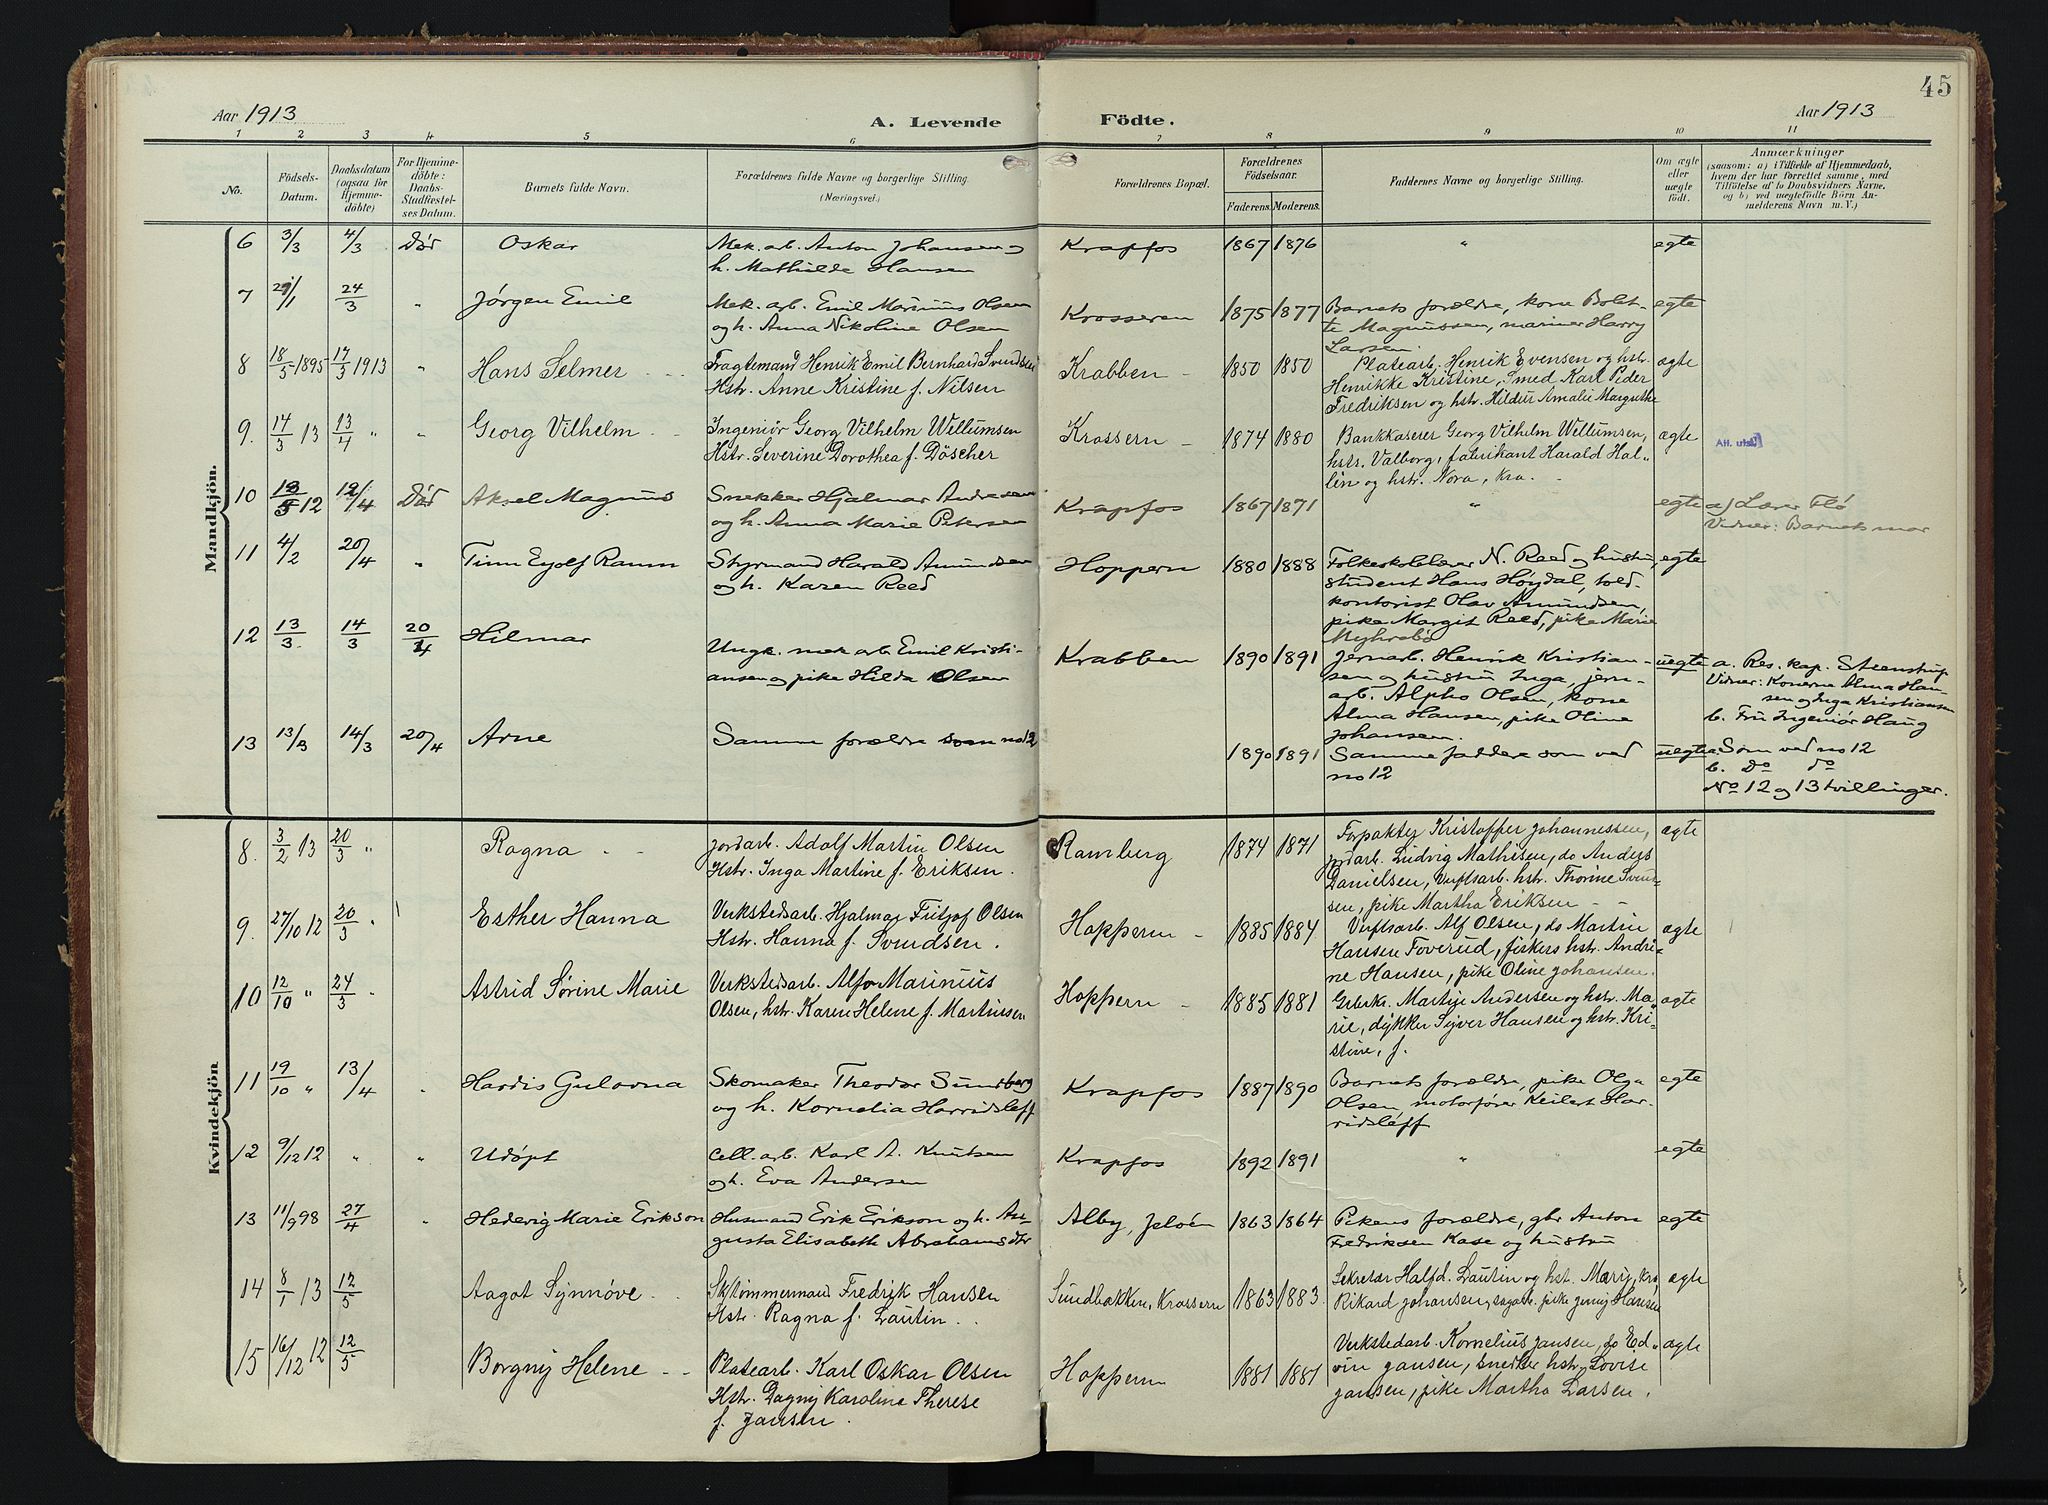 45
Aar 1913
A. Levende Födte.
Aar 1913
1 2 3 4 5 6 7 8 9 10 11
No.
Födsels-
Datum.
Daabsdatum
(ogsaa for
Hjemme-
döbte)
For Hjemme-
döbte:
Daabs-
Stadfæstel-
ses Datum.
Barnets fulde Navn.
Forældrenes fulde Navne og borgerlige Stilling
(Næringsvei.)
Forældrenes Bopæl.
Forældrenes
Födselsaar.
Faderens. Moderens.
Faddernes Navne og borgerlige Stilling.
Om ægte
eller
uægte
födt.
Anmærkninger
(saasom: a) i Tilfælde af Hjemmedaab,
hvem der har forrettet samme, med
Tilföielse af to Daabsvidners Navne,
og b) ved uægtefödte Börn An-
melderens Navn m. V.)
Mandkjön.
6 3/3 4/3 Dør Oskar Mek. arb. Anton Johansen og
h. Mathilde Hansen
Krapfos 1867 1876 " egte
7 29/1 24/3 " Jørgen Emil Mek. arb. Emil Marinius Olsen
og h. Anna Nikoline Olsen
Krosseren 1875 1877 Barnets forældre, kone Bolet-
te Magnussen, mariner Harry
Larsen. egte
8 18/5 1895 17/3 1913 " Hans Selmer Fragtemand Henrik Emil Bernhard Svendsen
Hstr. Anne Kristine f. Nilsen
Krabben 1850 1850 Platearb. Henrik Evensen og hstr.
Henrikke Kristine, Smed Karl Peder
Fredriksen og hstr. Hildur Amalie Margrethe ægte
9. 14/3 13 13/4 " " Georg Vilhelm Ingeniør Georg Vilhelm Willumsen
Hstr. Severine Dorothea f. Döscher
Krossern 1874 1880 Bankkaserer Georg Vilhelm Willumsen,
hstr. Valborg, fabrikant Harald Hal-
lén og hstr. Nora, Kra. ægte Att. utst.
10 12 /4 Aksel Magnus Snekker Hjalmar Andresen
og h. Anna Marie Petersen
Krapfos 1867 1871 " egte a) Lærer Flø
Vidner: Barnets mor
11 4/2 20/4 " Finn Eyolf Raum Styrmand Harald Amundsen
og h. Karen Reed
Hoppern 1880 1888 Folkeskolelærer N. Reed og hustru,
student Hans Høydal, told-
kontorist Olav Amundsen,
pike Margit Reed, pike Marie
Myhrebø egte
12 13/3 14/3 20/4 Hilmar Ungk. mek arb. Emil Kristi-
ansen og pike Hilda Olsen
Krabben 1890 1891 Jernarb. Henrik Kristian-
sen og hustru Inga, jern-
arb. Alpho Olsen, kone
Alma Hansen, pike Oline
Johansen. uegte a. Res. kap. Steenstrup
Vidner: Konerne Alma Han-
sen og Inga Kristiansen
b. Fru Ingeniør Haug
13 13/3 14/3 20/4 Arne Samme forældre som no 12
1890 1891 Samme faddere som ved
no 12 uegte a. Som ved no 12
b. Do do
No 12 og 13 tvillinger.
Kvindekjön
8. 3/2 13 20/3 " Ragna Jordarb. Adolf Martin Olsen
Hstr. Inga Martine f. Eriksen.
Ramberg 1874 1871 Forpakter Kristoffer Johannessen,
jordarb. Ludvig Mathisen, do Anders
Danielsen, Verftsarb. hstr. Thorine Svend-
sen, pike Martha Eriksen ægte
9. 27/10 12 20/3 " Esther Hanna Verkstedsarb. Hjalmar Fritjof Olsen
Hstr. Hanna f. Svendsen.
Hoppern 1885 1884 Verftsarb. Alf Olsen, do Martin
Hansen Foverud, fiskers hstr. Andri-
ne Hansen, pike Oline Johansen. ægte
10 12/10 " 24/3 " Astrid Sørine Marie Verkstedsarb. Alfo Marinius
Olsen, hstr. Karen Helene f. Martinsen
Hoppern 1885 1881 Martin Andersen og hstr. Ma-
rie, dykker Syver Hansen og hstr. Kri-
stine, f. ægte
11 19/10 " 13/4 " Hardis Gulovna Skomaker Theodor Sundberg
og h. Kornelia Harridsleff
Krapfos 1887 1890 Barnets forældre, pike Olga
Olsen, motorfører Keilert Har-
ridsleff egte
12 9/12 12 " " Udøpt Cell. arb. Karl A. Knutsen
og h. Eva Andersen
Krapfos 1892 1891 " egte
13 11/9 98 27/4 " Hedevig Marie Erikson Husmand Erik Erikson og h. Au-
gusta Elisabeth Abrahamsdtr
Alby, Jeløen 1863 1864 Pikens forældre, gbr Anton
Fredriksen Kase og hustru egte
14 8/1 13 12/5 Aagot Synnøve Sk.tømmermand Fredrik Hansen
Hstr. Ragna f. Lautin
Sundbakken, Krossern 1863 1883 Sekretær Halfd. Lautin og hst. Mary, Kra,
Rikard Johansen, sagarb. pike Jenny Hansen ægte
15 16/12 12 12/5 Borgny Helene Platearb. Karl Oskar Olsen
Hstr. Dagny Karoline Therese
f. Jansen.
Hoppern 1881 1881 Verkstedarb. Kornelius Jansen, do Ed-
vin Jansen, snedker hstr. Lovise
Jansen, pike Martha Larsen. ægte